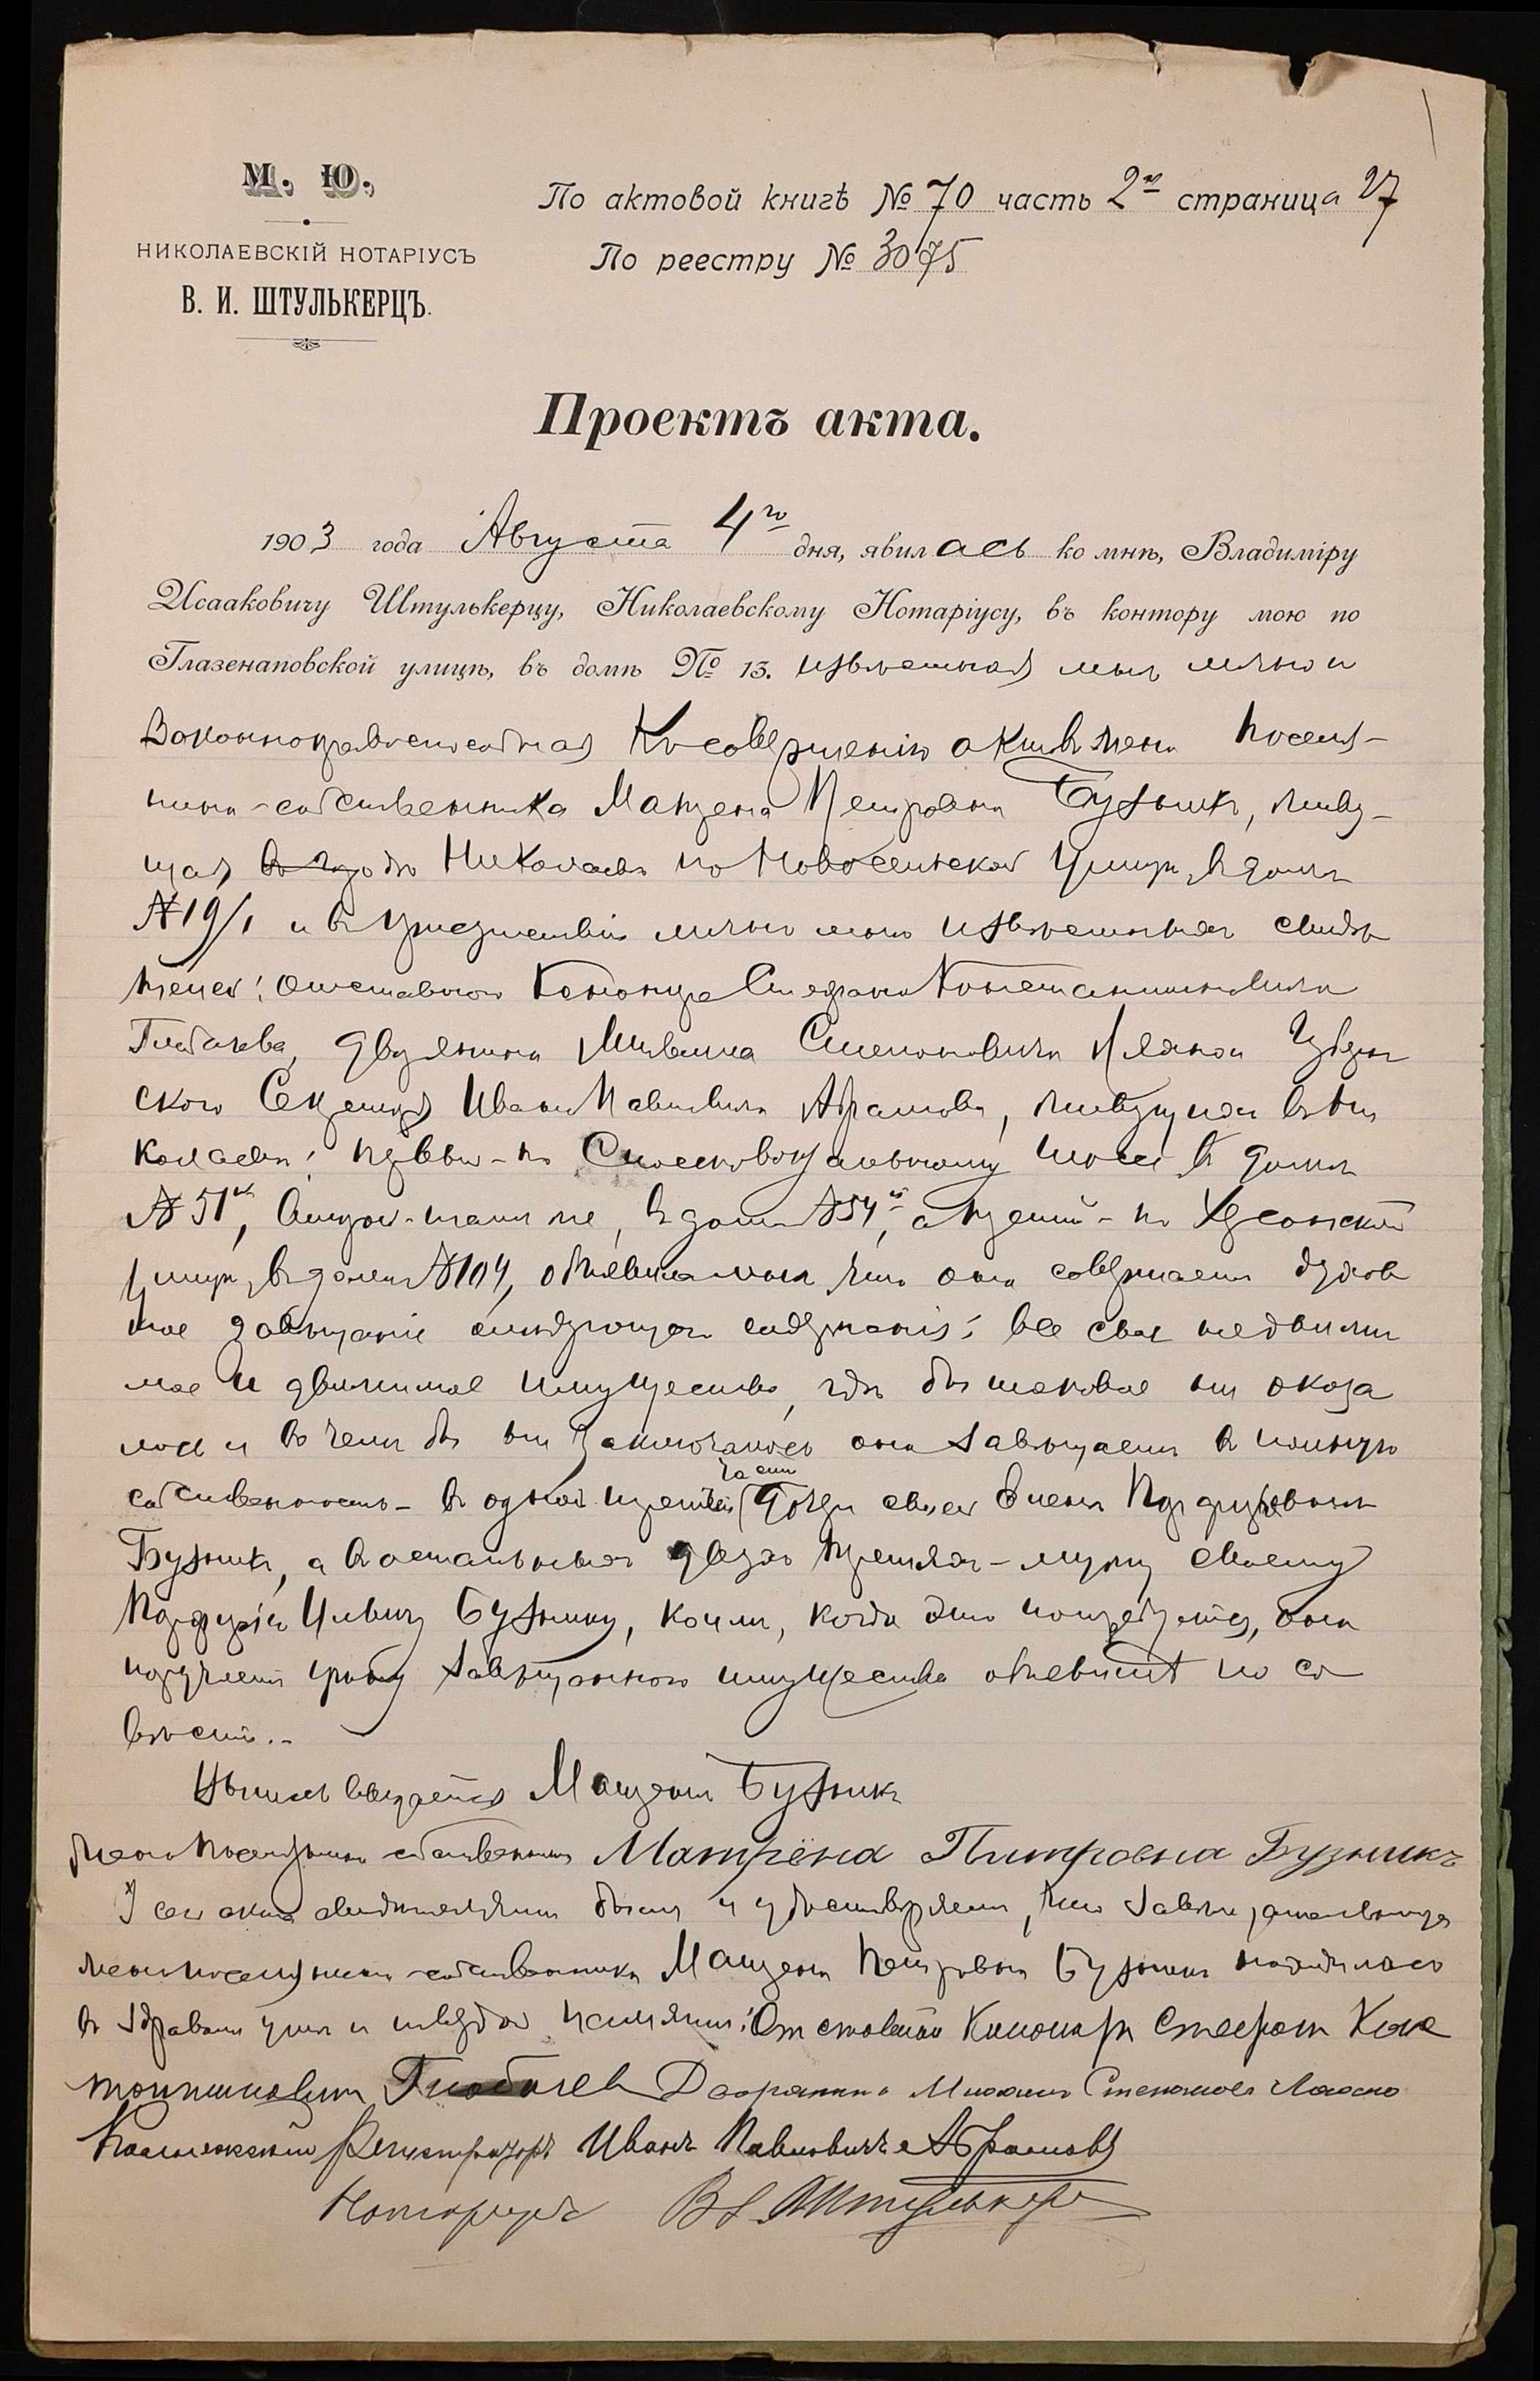 М. Ю.
НИКОЛАЕВСКІЙ НОТАРІУСЪ
В. И. ШТУЛЬКЕРЦЪ.
По актовой книгѣ № 70 часть 2я страница 27
По реестру № 3075
Проектъ акта.
1903 года Августа 4го дня, явилась ко мнѣ, Владиміру
Исааковичу Штулькерцу, Николаевскому Нотаріусу, въ контору мою по
Глазенаповской улицѣ, въ домѣ № 13. извѣстная мнѣ лично и
законноправоспособная къ совершенію актовъ жена поселя-
нина-собственника Матрена Петровна Бузникъ, живу-
щая въ городѣ Николаевѣ по Новосельской улицѣ, въ домѣ
№ 19/1 и въ присутствіи лично мнѣ извѣстныхъ свидѣ
телей: отставного Стефана Константиновича
дворянина Михаила Степановича и
ского Секретаря Ивана Павловича Абрамова, живущихъ въ Ни
колаевѣ: первый-по шоссе въ домѣ
№ 51й, второй-тамъ же, въ домѣ № 54й, а третій-по Херсонской
улицѣ, въ домѣ № 104, объявила мнѣ что она совершаетъ духов
ное завѣщаніе слѣдующаго содержанія: все свое недвижи
мое и движимое имущество, гдѣ бы таковое ни оказа
лось и въ чемъ бы ни заключалось она завѣщаетъ въ полную
собственность-въ одной третьей части дочери своей Еленѣ Порфирьевнѣ
Бузникъ, а въ остальныхъ двухъ третяхъ-мужу своему
Порфирію Ильичу Бузнику, коимъ, когда это потребуется, она
поручаетъ цѣну завѣщаннаго имущества объявить по со
вѣсти.-
Матрена Бузникъ
жена поселянина собственника Матрёна Питровна Бузникъ
У сего акта свидѣтелями были и удостовѣряемъ, что завѣщательница
жена поселянина-собственника Матрена Петровна Бузникъ находилась
въ здравомъ умѣ и твердой памяти: Отставной Стефанъ Конс
тантиновичъ Дворянинъ Михаилъ Степановъ
Коллежскій Регистраторъ Иванъ Павловичъ Абрамовъ
Нотаріусъ В. Штулькерцъ